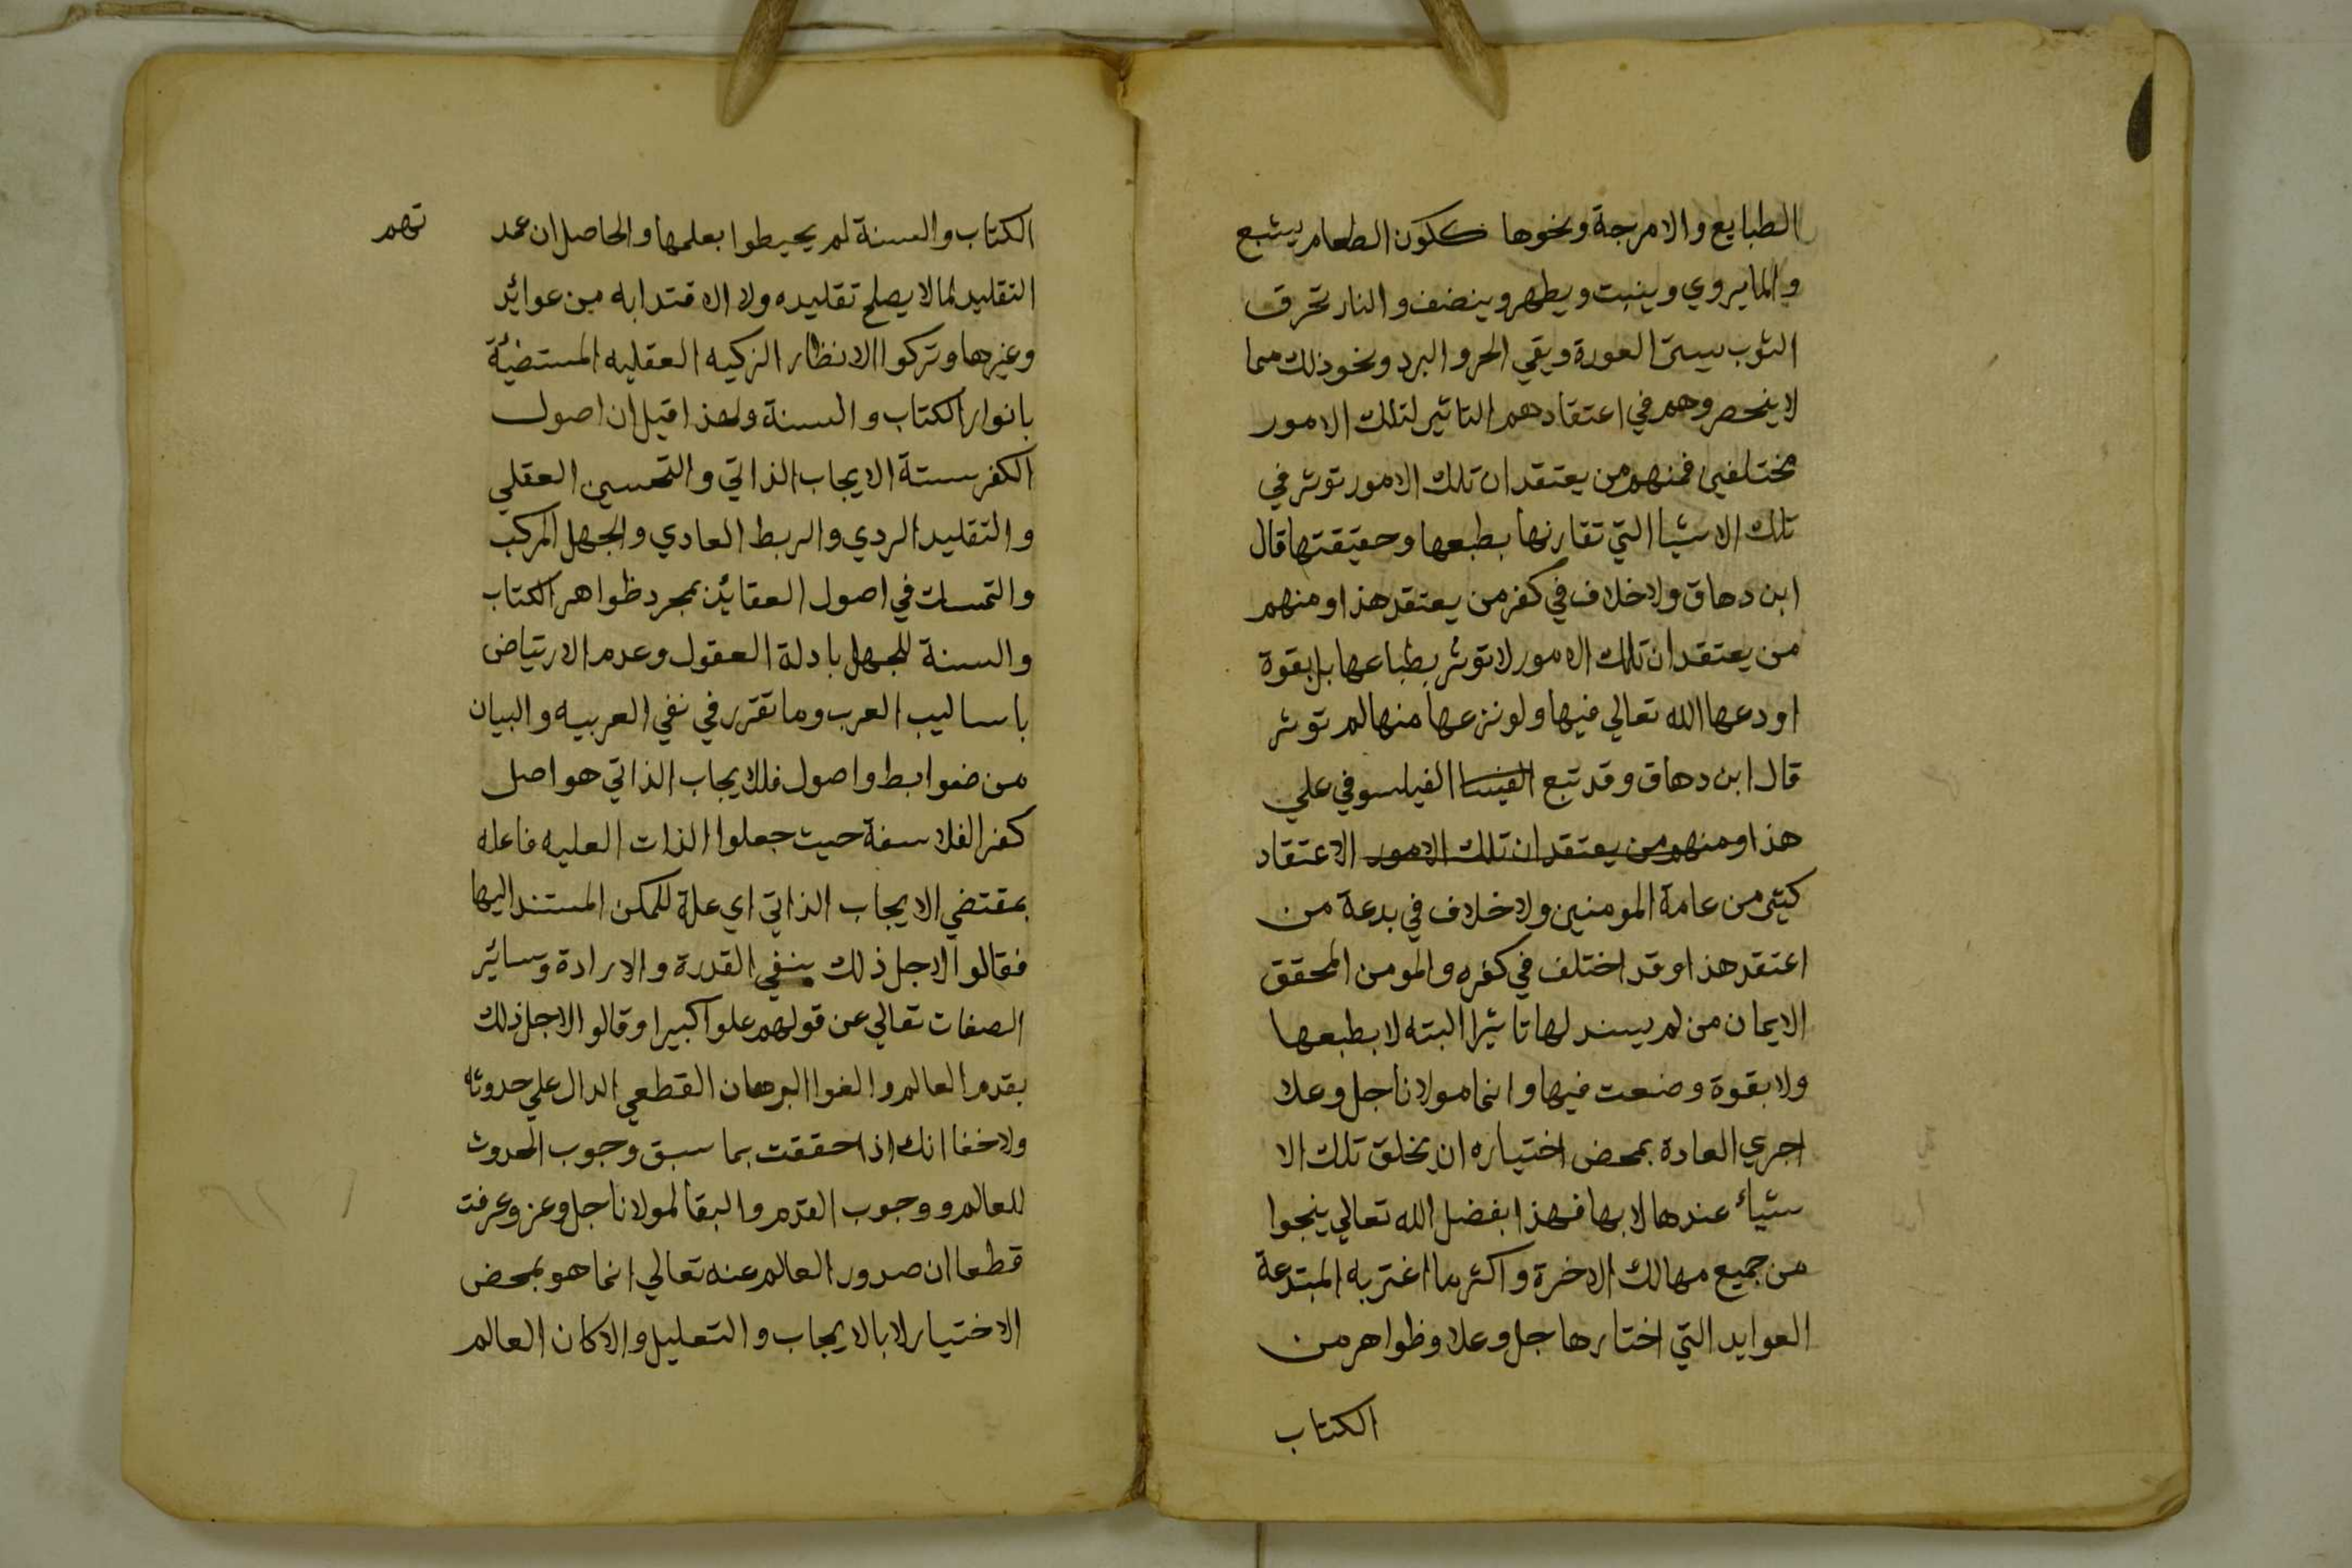 الطبايع والامزجة ونحوها ككون الطعام يشبع
والما يروي وينبت ويطهر وينضف والنار تحرق
الثوب يستر العورة ويقي الحر والبرد ونحو ذلك مما
لا ينحصر وهم في اعتقادهم التاثير لتلك الامور
مختلفين فمنهم من يعتقد ان تلك الامور توثر في
تلك الاشيا التي تقارنها بطبعها وحقيقتها قال
ابن دهاق ولا خلاف في كفر من يعتقد هذا ومنهم
من يعتقد ان تلك الامور لا توثر بطباعها بل بقوة
اودعها الله تعالي فيها ولو نزعها منها لم توثر
قال ابن دهاق وقد تبع الفيلسوفي علي
هذا ومنهم من يعتقد ان تلك الامور الاعتقاد
كثير من عامة المومنين ولا خلاف في بدعة من
اعتقد هذا وقد اختلف في كفره والمومن المحقق
الايمان من لم يسند لها تاثيرا البته لا بطبعها
ولا بقوة وضعت فيها وانما مولانا جل وعلا
اجري العادة بمحض اختياره ان يخلق تلك الا
شياء عندها لا بها فهذا بفضل الله تعالي ينجوا
من جميع مهالك الاخرة واكثر ما اغتر به المبتدعة
العوايد التي اختارها جل وعلا وظواهر من
الكتاب
الكتاب والسنة لم يحيطوا بعلمها والحاصل ان عمد
تهم
التقليد لما لا يصلح تقليده ولا الاقتدا به من عوائد
وغيرها وتركوا الانظار الزكيه العقليه المستضيئة
بانوار الكتاب والسنة ولهذا قيل ان اصول
الكفر ستة الايجاب الذاتي والتحسين العقلي
والتقليد الردي والربط العادي والجهل المركب
والتمسك في اصول العقائد بمجرد ظواهر الكتاب
والسنة للجهل بادلة العقول وعدم الارتياض
باساليب العرب وما تقرر في نفي العربيه والبيان
من ضوابط واصول فالايجاب الذاتي هو اصل
كفر الفلاسفة حيث جعلوا الذات العليه فاعله
بمقتضي الايجاب الذاتي اي علة للممكن المستند اليها
فقالوا لاجل ذلك بنفي القدرة والارادة وسائير
الصفات تعالي عن قولهم علوا كبيرا وقالوا لاجل ذلك
بقدم العالم والغوا البرهان القطعي الدال علي حدوثه
ولا خفا انك اذا حققت بما سبق وجوب الحدوث
للعالم ووجوب القدم والبقا لمولانا جل وعز وعرفت
قطعا ان صدور العالم عنه تعالي انما هو بمحض
الاختيار لا بالايجاب والتعليل والا كان العالم